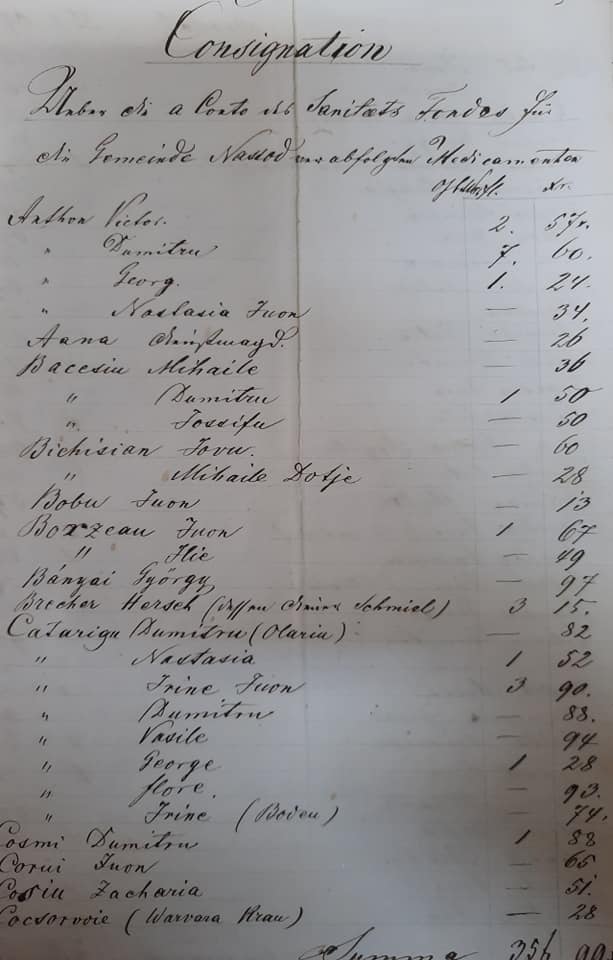 Consignation
Ueber die a Conto des Sanitæts Fondes für
die Gemeinde Nassod verabfolgten Medicamenten
fl. xr.
Anthon Victor. 2. 57.
" Dumitru 7. 60.
" Georg. 1. 24.
" Nastasia Juon — 34.
Aana — 26
Baccsiu Mihaile — 36
" Dumitru 1 50
" Jossifu — 50
Bichisian Jovu. — 60
" Mihaile Dotje — 28
Bobu Juon — 13
Borzeau Juon 1 67
" Ilie — 49
Bányai György — 97
Brecher Hersch (dessen Schmiel) 3 15.
Catarigu Dumitru (Olariu) — 82
" Nastasia 1 52
" Irine Juon 3 90.
" Dumitru — 88.
" Vasile — 94
" George 1 28
" flore. — 93.
" Irine (Boden) — 74.
Cosmi Dumitru 1 88
Corui Juon — 65
Cosiu Zacharia — 51.
Cocsorvoie (Warvara Krau) — 28
Summa 356 99